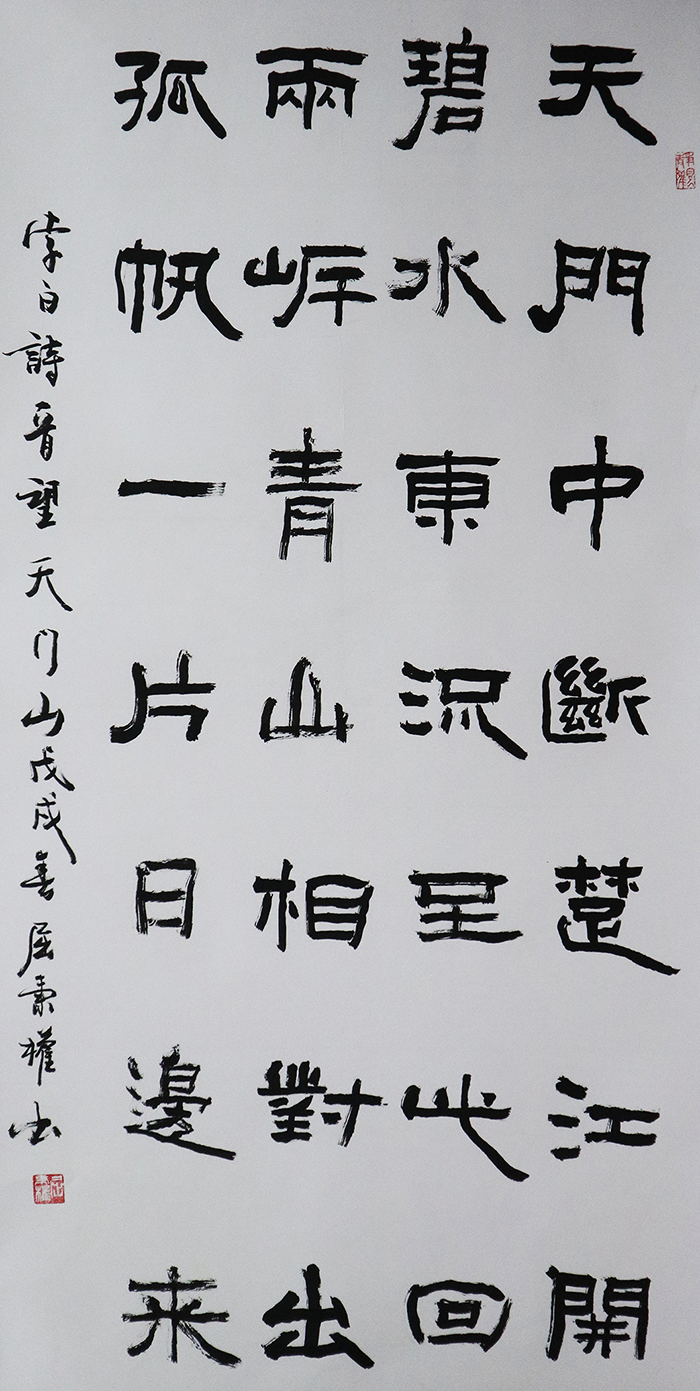 天門中斷楚江開
碧水東流至此回
兩岸青山相對出
孤帆一片日邊来
李白詩一首望天门山戊戌春屈秉權书